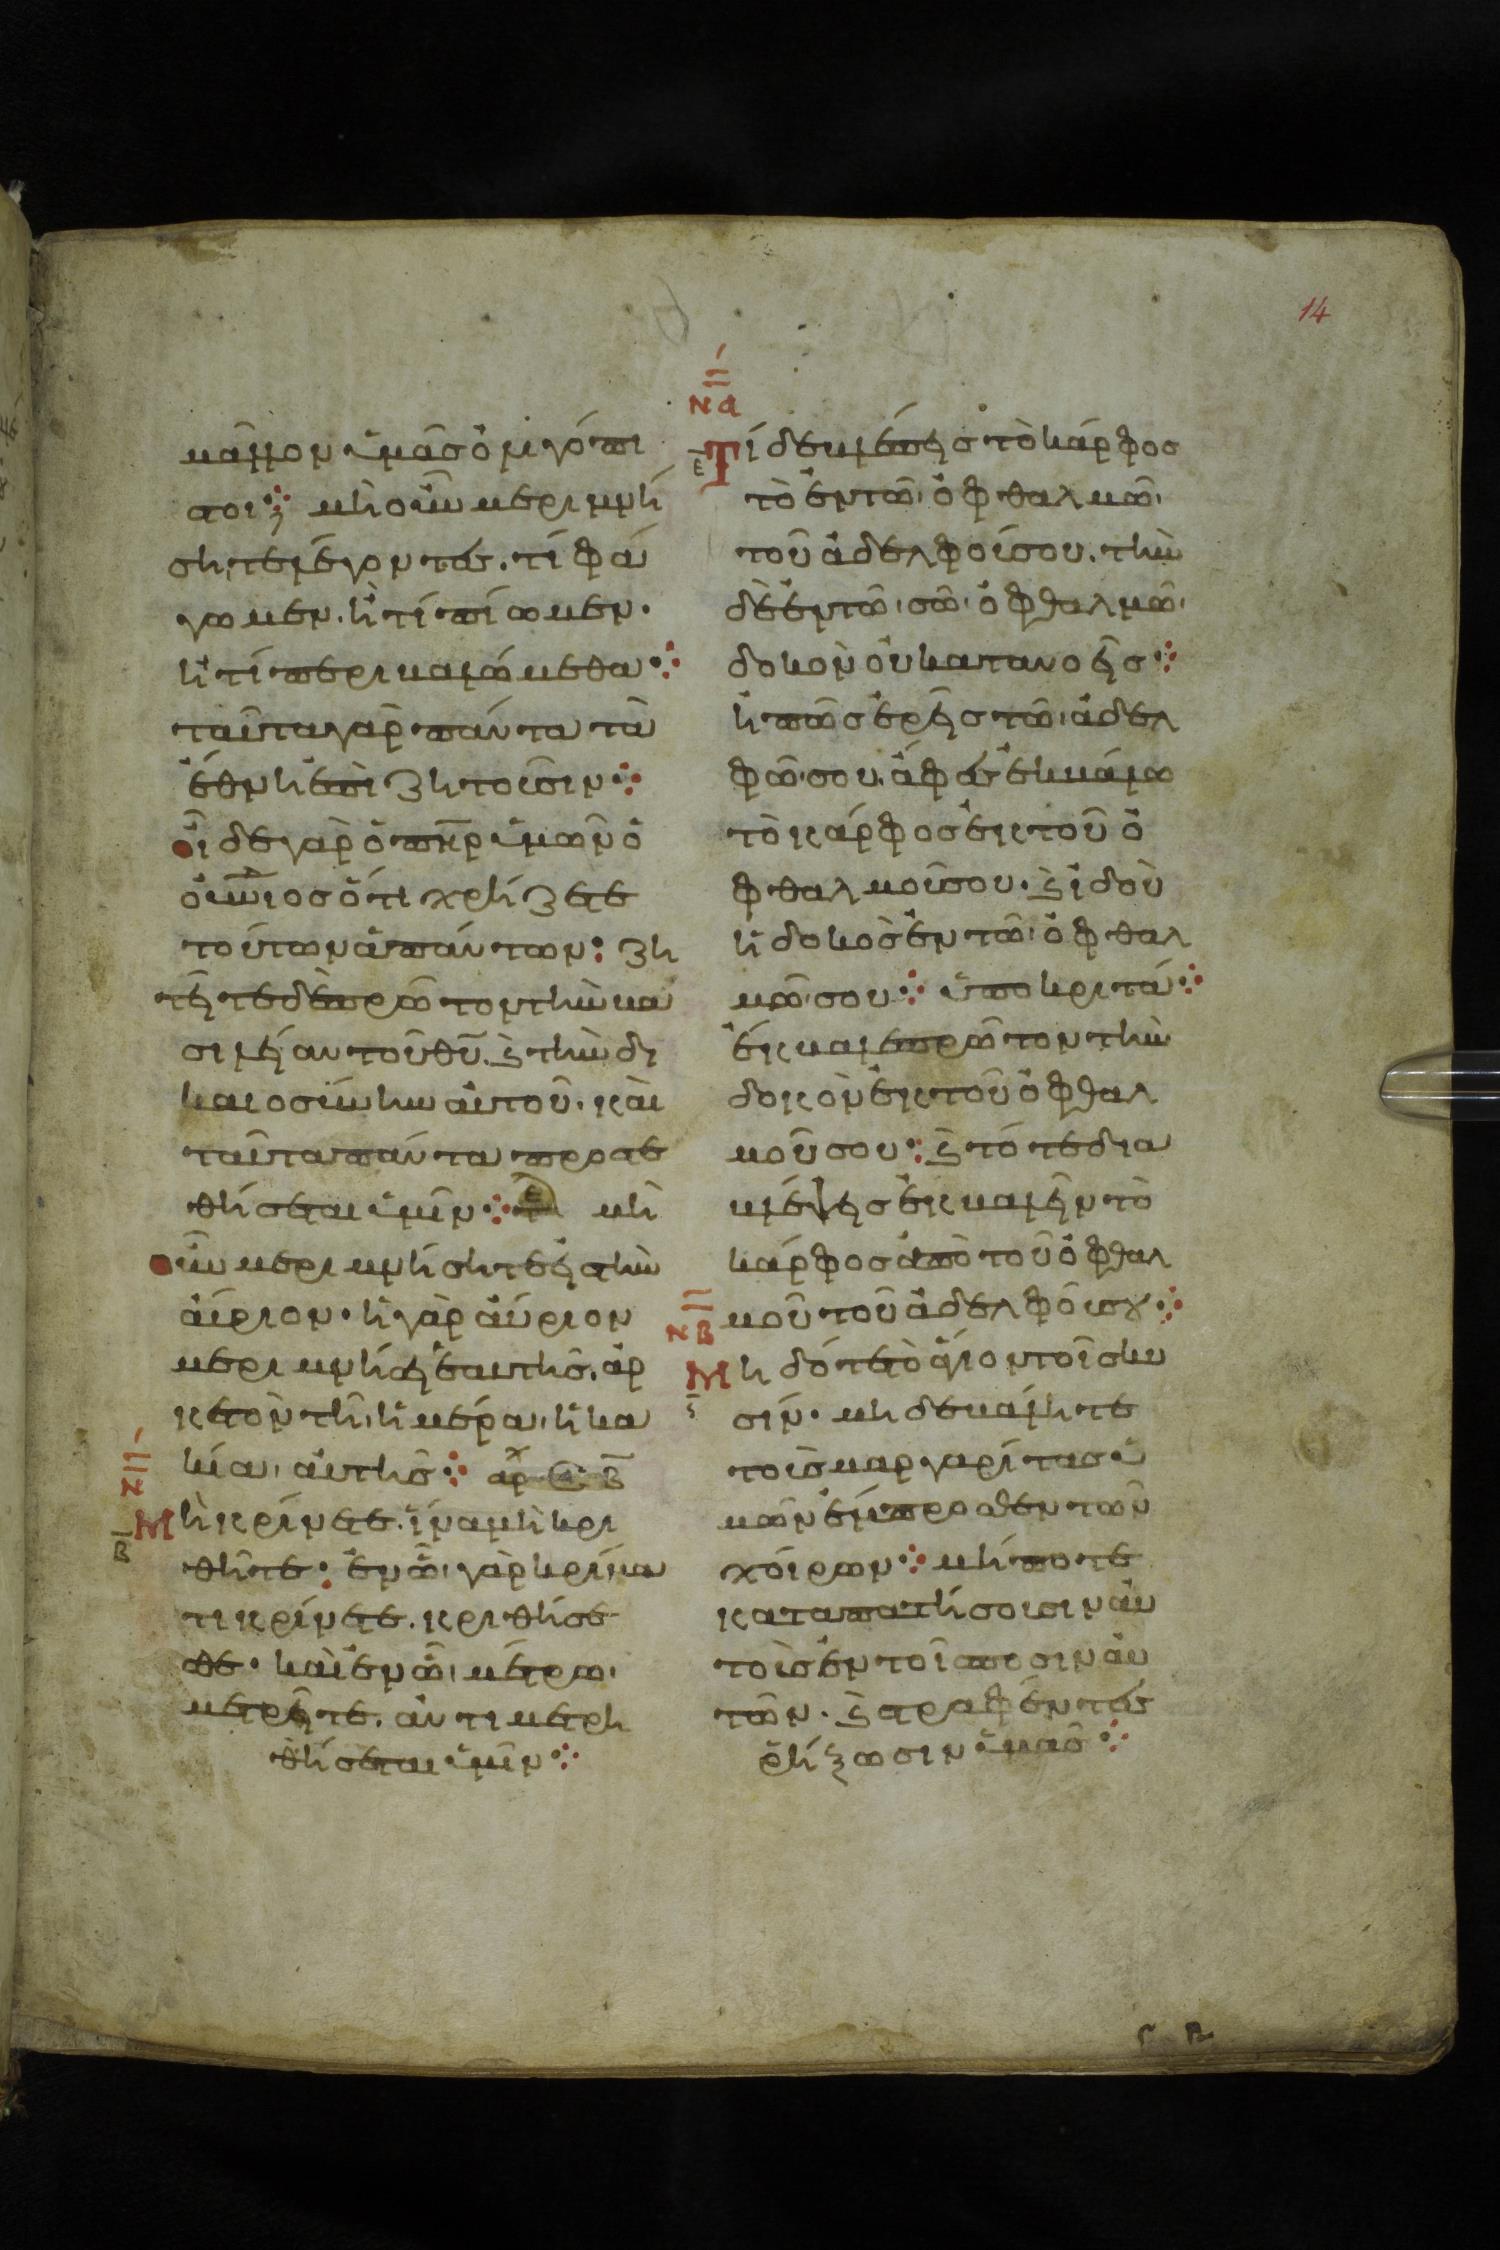 14
μᾶλλον ὑμᾶσ ὀλιγόπι
στοι· μὴ οὖν μεριμνή
σητε λέγοντες. τί φά
γωμεν. ἢ τί πίωμεν.
ἢ τί περιβαλώμεθα
ταῦτα γὰρ πάντα τὰ
ἔθνη ἐπιζητοῦσιν
οἶδε γὰρ ὁ πηρ ὑμῶν ὁ
οὐνιοσ ὅτι χρήζετε
τούτων ἁπάντων: ζη
τεῖτε δὲ πρῶτον τὴν βα
σιλείαν τοῦ θυ. καὶ τὴν δι
καιοσύνην αὐτοῦ. καὶ
ταῦτα πάντα προστε
θήσεται ὑμῖν μὴ
οὖν μεριμνήσητε εἰς τὴν
αὔριον. ἡ γὰρ αὔριον
μεριμνήσει ἑαυτῆς. ἀρ
κετὸν τῇ ἡμέρα, ἡ κα
κία, αὐτῆσ αρχ Β
Μὴ κρίνετε. ἵνα μὴ κρι
θῆτε. ἐν ᾧ γὰρ κρίμα
τι κρίνετε. κριθήσε
σθε. καὶ ἐν ᾧ μέτρω,
μετρεῖτε. ἀντιμετρη
θήσεται ὑμῖν
ΝΑ
Τί δὲ βλέπεισ τὸ κάρφοσ
τὸ ἐν τῶ ὀφθαλμῶ
τοῦ ἀδελφοῦ σου. τὴν
δὲ ἐν τῶ σῶ ὀφθαλμῶ
δοκὸν οὐ κατανοεῖσ
ἢ πῶσ ἐρεῖσ τῶ ἀδελ
φῶ σου. ἄφες ἐκβάλω
τὸ κάρφοσ ἐκ τοῦ ὀ
φθαλμοῦ σου. καὶ ἰδοὺ
ἡ δοκὸσ ἐν τῶ ὀφθαλ
μῶ σου ὑποκριτά
ἔκβαλε πρῶτον τὴν
δοκὸν ἐκ τοῦ ὀφθαλ
μοῦ σου: καὶ τότε δια
βλέψεισ ἐκβαλεῖν τὸ
κάρφοσ ἀπὸ τοῦ ὀφθαλ
μοῦ τοῦ ἀδελφοῦ σου
ΝΒ
Μὴ δότε τὸ ἅγιον τοῖσ κυ
σίν. μηδὲ βάλητε
τοὺσ μαργαρίτασ ὑ
μῶν ἔμπροσθεν τῶν
χοίρων μήποτε
καταπατήσουσιν αὐ
τοὺσ ἐν τοῖσ ποσὶν αὐ
τῶν. καὶ στραφέντες
ῥήξωσιν ὑμᾶσ